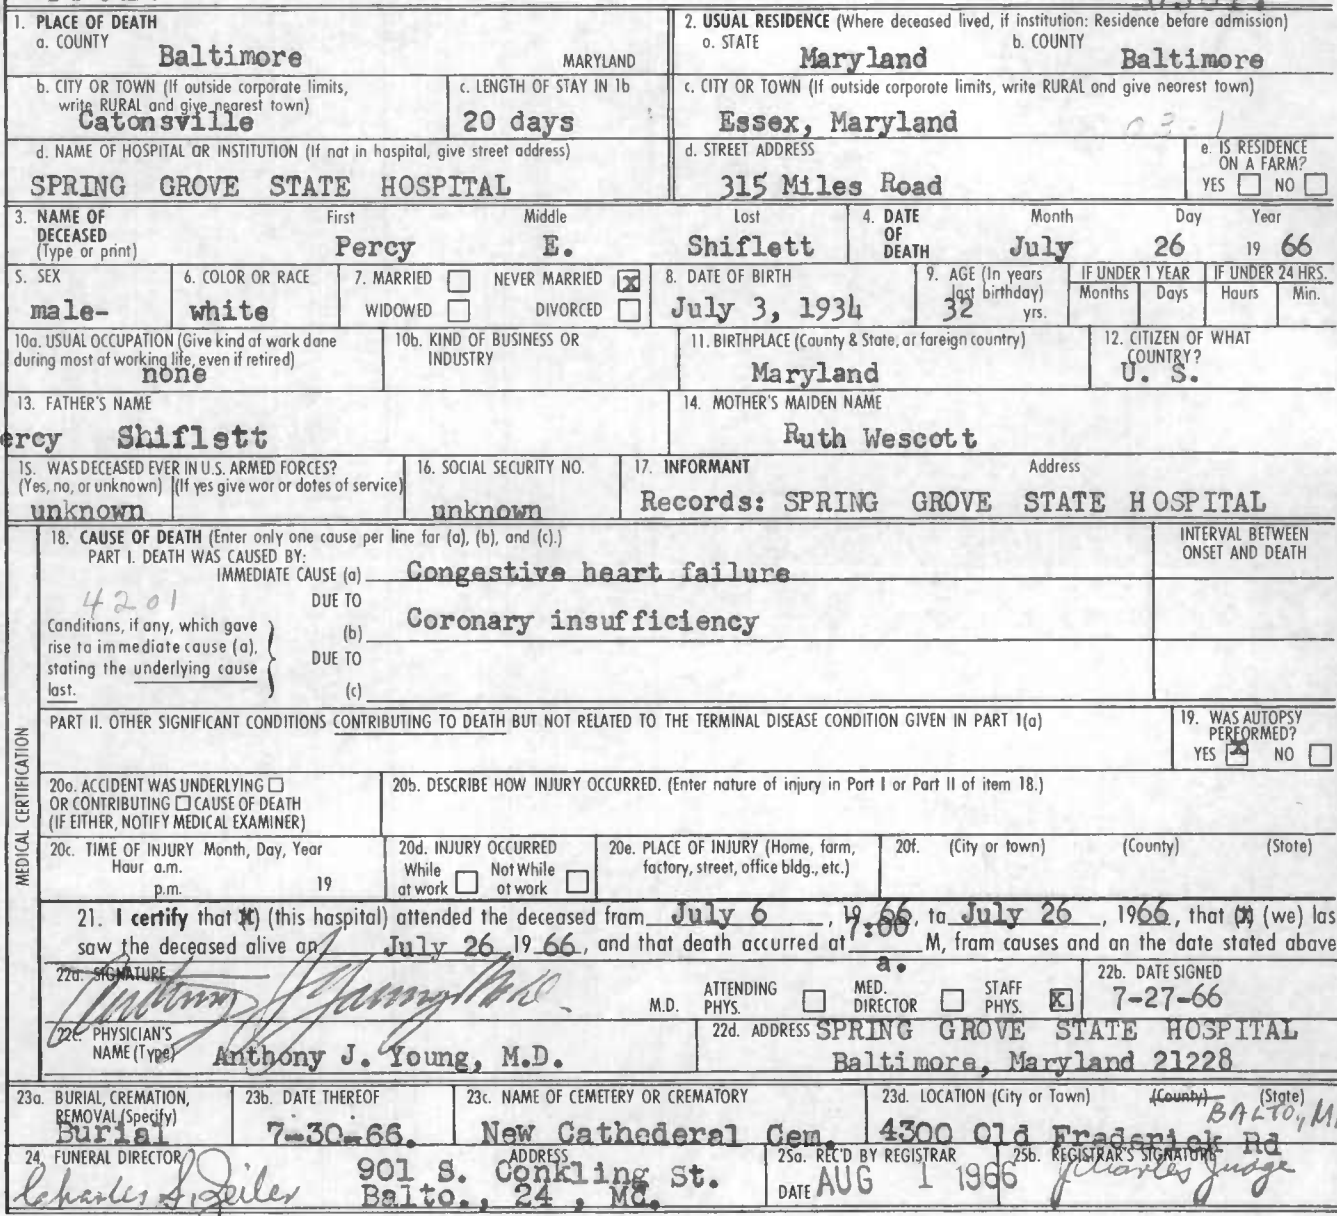 1. PLACE OF DEATH
a. COUNTY
Baltimore MARYLAND
2. USUAL RESIDENCE (Where deceased lived, if institution: Residence before admission)
a. STATE b. COUNTY
Maryland Baltimore
b. CITY OR TOWN (If outside corporate limits,
write RURAL and give nearest town)
Catonsville
c. LENGTH OF STAY IN 1b
20 days
c. CITY OR TOWN (If outside corporate limits, write RURAL and give nearest town)
Essex, Maryland
03-1
d. NAME OF HOSPITAL OR INSTITUTION (If not in hospital, give street address)
SPRING GROVE STATE HOSPITAL
d. STREET ADDRESS
315 Miles Road
e. IS RESIDENCE
ON A FARM?
YES NO
3. NAME OF
DECEASED
(Type or print)
First Middle Last
Percy E. Shiflett
4. DATE
OF
DEATH
Month Day Year
July 26 19 66
5. SEX
male-
6. COLOR OR RACE
white
7. MARRIED NEVER MARRIED X
WIDOWED DIVORCED
8. DATE OF BIRTH
July 3, 1934
9. AGE (In years
last birthday)
32 yrs.
IF UNDER 1 YEAR
Months Days
IF UNDER 24 HRS.
Hours Min.
10a. USUAL OCCUPATION (Give kind of work done
during most of working life, even if retired)
none
10b. KIND OF BUSINESS OR
INDUSTRY
11. BIRTHPLACE (County & State, or foreign country)
Maryland
12. CITIZEN OF WHAT
COUNTRY?
U. S.
13. FATHER'S NAME
ercy Shiflett
14. MOTHER'S MAIDEN NAME
Ruth Wescott
15. WAS DECEASED EVER IN U.S. ARMED FORCES?
(Yes, no, or unknown) (If yes give war or dates of service)
unknown
16. SOCIAL SECURITY NO.
unknown
17. INFORMANT Address
Records: SPRING GROVE STATE HOSPITAL
MEDICAL CERTIFICATION
18. CAUSE OF DEATH (Enter only one cause per line for (a), (b), and (c).)
PART I. DEATH WAS CAUSED BY:
IMMEDIATE CAUSE (a) Congestive heart failure
INTERVAL BETWEEN
ONSET AND DEATH
4201
DUE TO
Conditions, if any, which gave
rise to immediate cause (a),
stating the underlying cause
last.
(b) Coronary insufficiency
DUE TO
(c)
PART II. OTHER SIGNIFICANT CONDITIONS CONTRIBUTING TO DEATH BUT NOT RELATED TO THE TERMINAL DISEASE CONDITION GIVEN IN PART I(a)
19. WAS AUTOPSY
PERFORMED?
YES X NO
20a. ACCIDENT WAS UNDERLYING
OR CONTRIBUTING CAUSE OF DEATH
(IF EITHER, NOTIFY MEDICAL EXAMINER)
20b. DESCRIBE HOW INJURY OCCURRED. (Enter nature of injury in Part I or Part II of item 18.)
20c. TIME OF INJURY Month, Day, Year
Hour a.m.
p.m. 19
20d. INJURY OCCURRED
While Not While
at work at work
20e. PLACE OF INJURY (Home, farm,
factory, street, office bldg., etc.)
20f. (City or town) (County) (State)
21. I certify that (X) (this hospital) attended the deceased from July 6, 19 66, to July 26, 1966, that (X) (we) las
saw the deceased alive on July 26 19 66, and that death occurred at 7:00 a. M, from causes and on the date stated above
22a. SIGNATURE
M.D. ATTENDING PHYS. MED. DIRECTOR STAFF PHYS. X
22b. DATE SIGNED
7-27-66
22c. PHYSICIAN'S
NAME (Type) Anthony J. Young, M.D.
22d. ADDRESS SPRING GROVE STATE HOSPITAL
Baltimore, Maryland 21228
23a. BURIAL, CREMATION,
REMOVAL (Specify)
Burial
23b. DATE THEREOF
7-30-66.
23c. NAME OF CEMETERY OR CREMATORY
New Cathederal Cem.
23d. LOCATION (City or Town) (County) (State)
BALTO, M
4300 Old Frederick Rd
24. FUNERAL DIRECTOR
Charles S. Zeiler
ADDRESS
901 S. Conkling St.
Balto., 24 , Md.
25a. REC'D BY REGISTRAR
DATE AUG 1 1966
25b. REGISTRAR'S SIGNATURE
Charles Judge